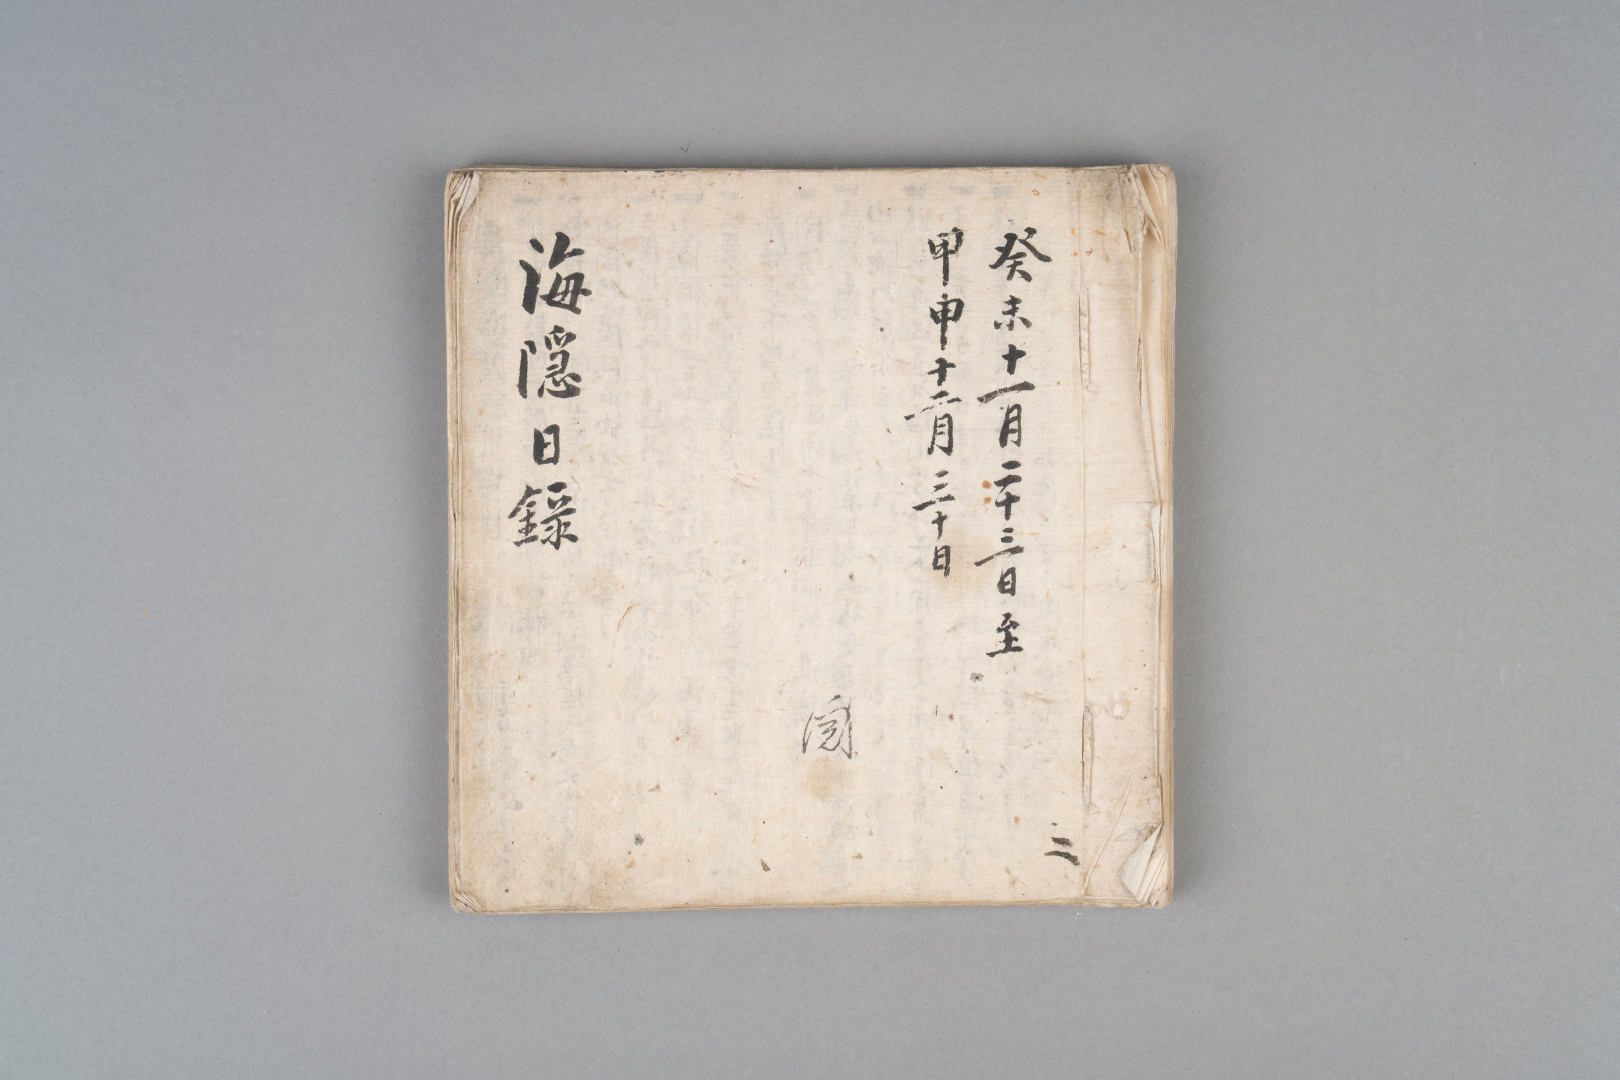 癸未十一月二十三日至
甲申十二月三十日
海隱日錄
二